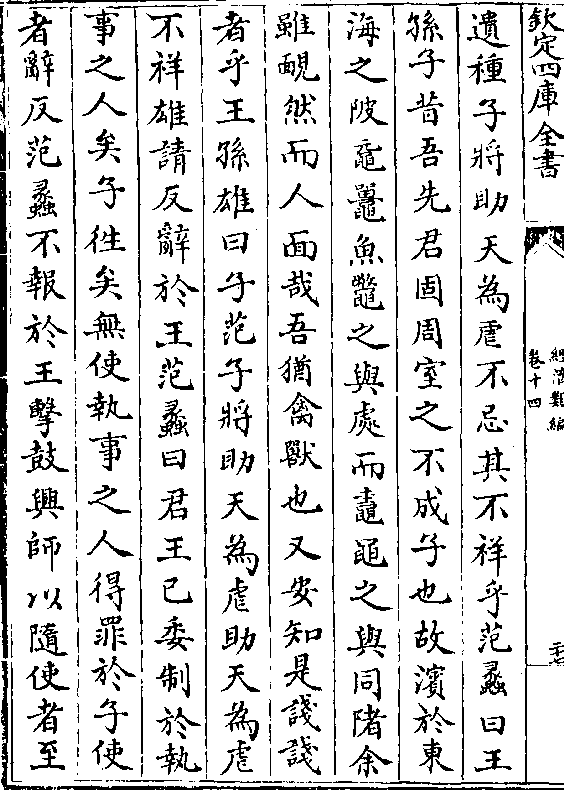 欽定四庫全書
經濟類編
卷十四
二十七
遺種子將助天為虐不忌其不祥乎范蠡曰王
孫子昔吾先君固周室之不成子也故濱於東
海之陂黿鼉魚鼈之與處而鼃黽之與同陼余
雖靦然而人面哉吾猶禽獸也又安知是諓諓
者乎王孫雄曰子范子將助天為虐助天為虐
不祥雄請反辭於王范蠡曰君王已委制於執
事之人矣子徃矣無使執事之人得罪於子使
者辭反范蠡不報於王擊鼓興師以隨使者至